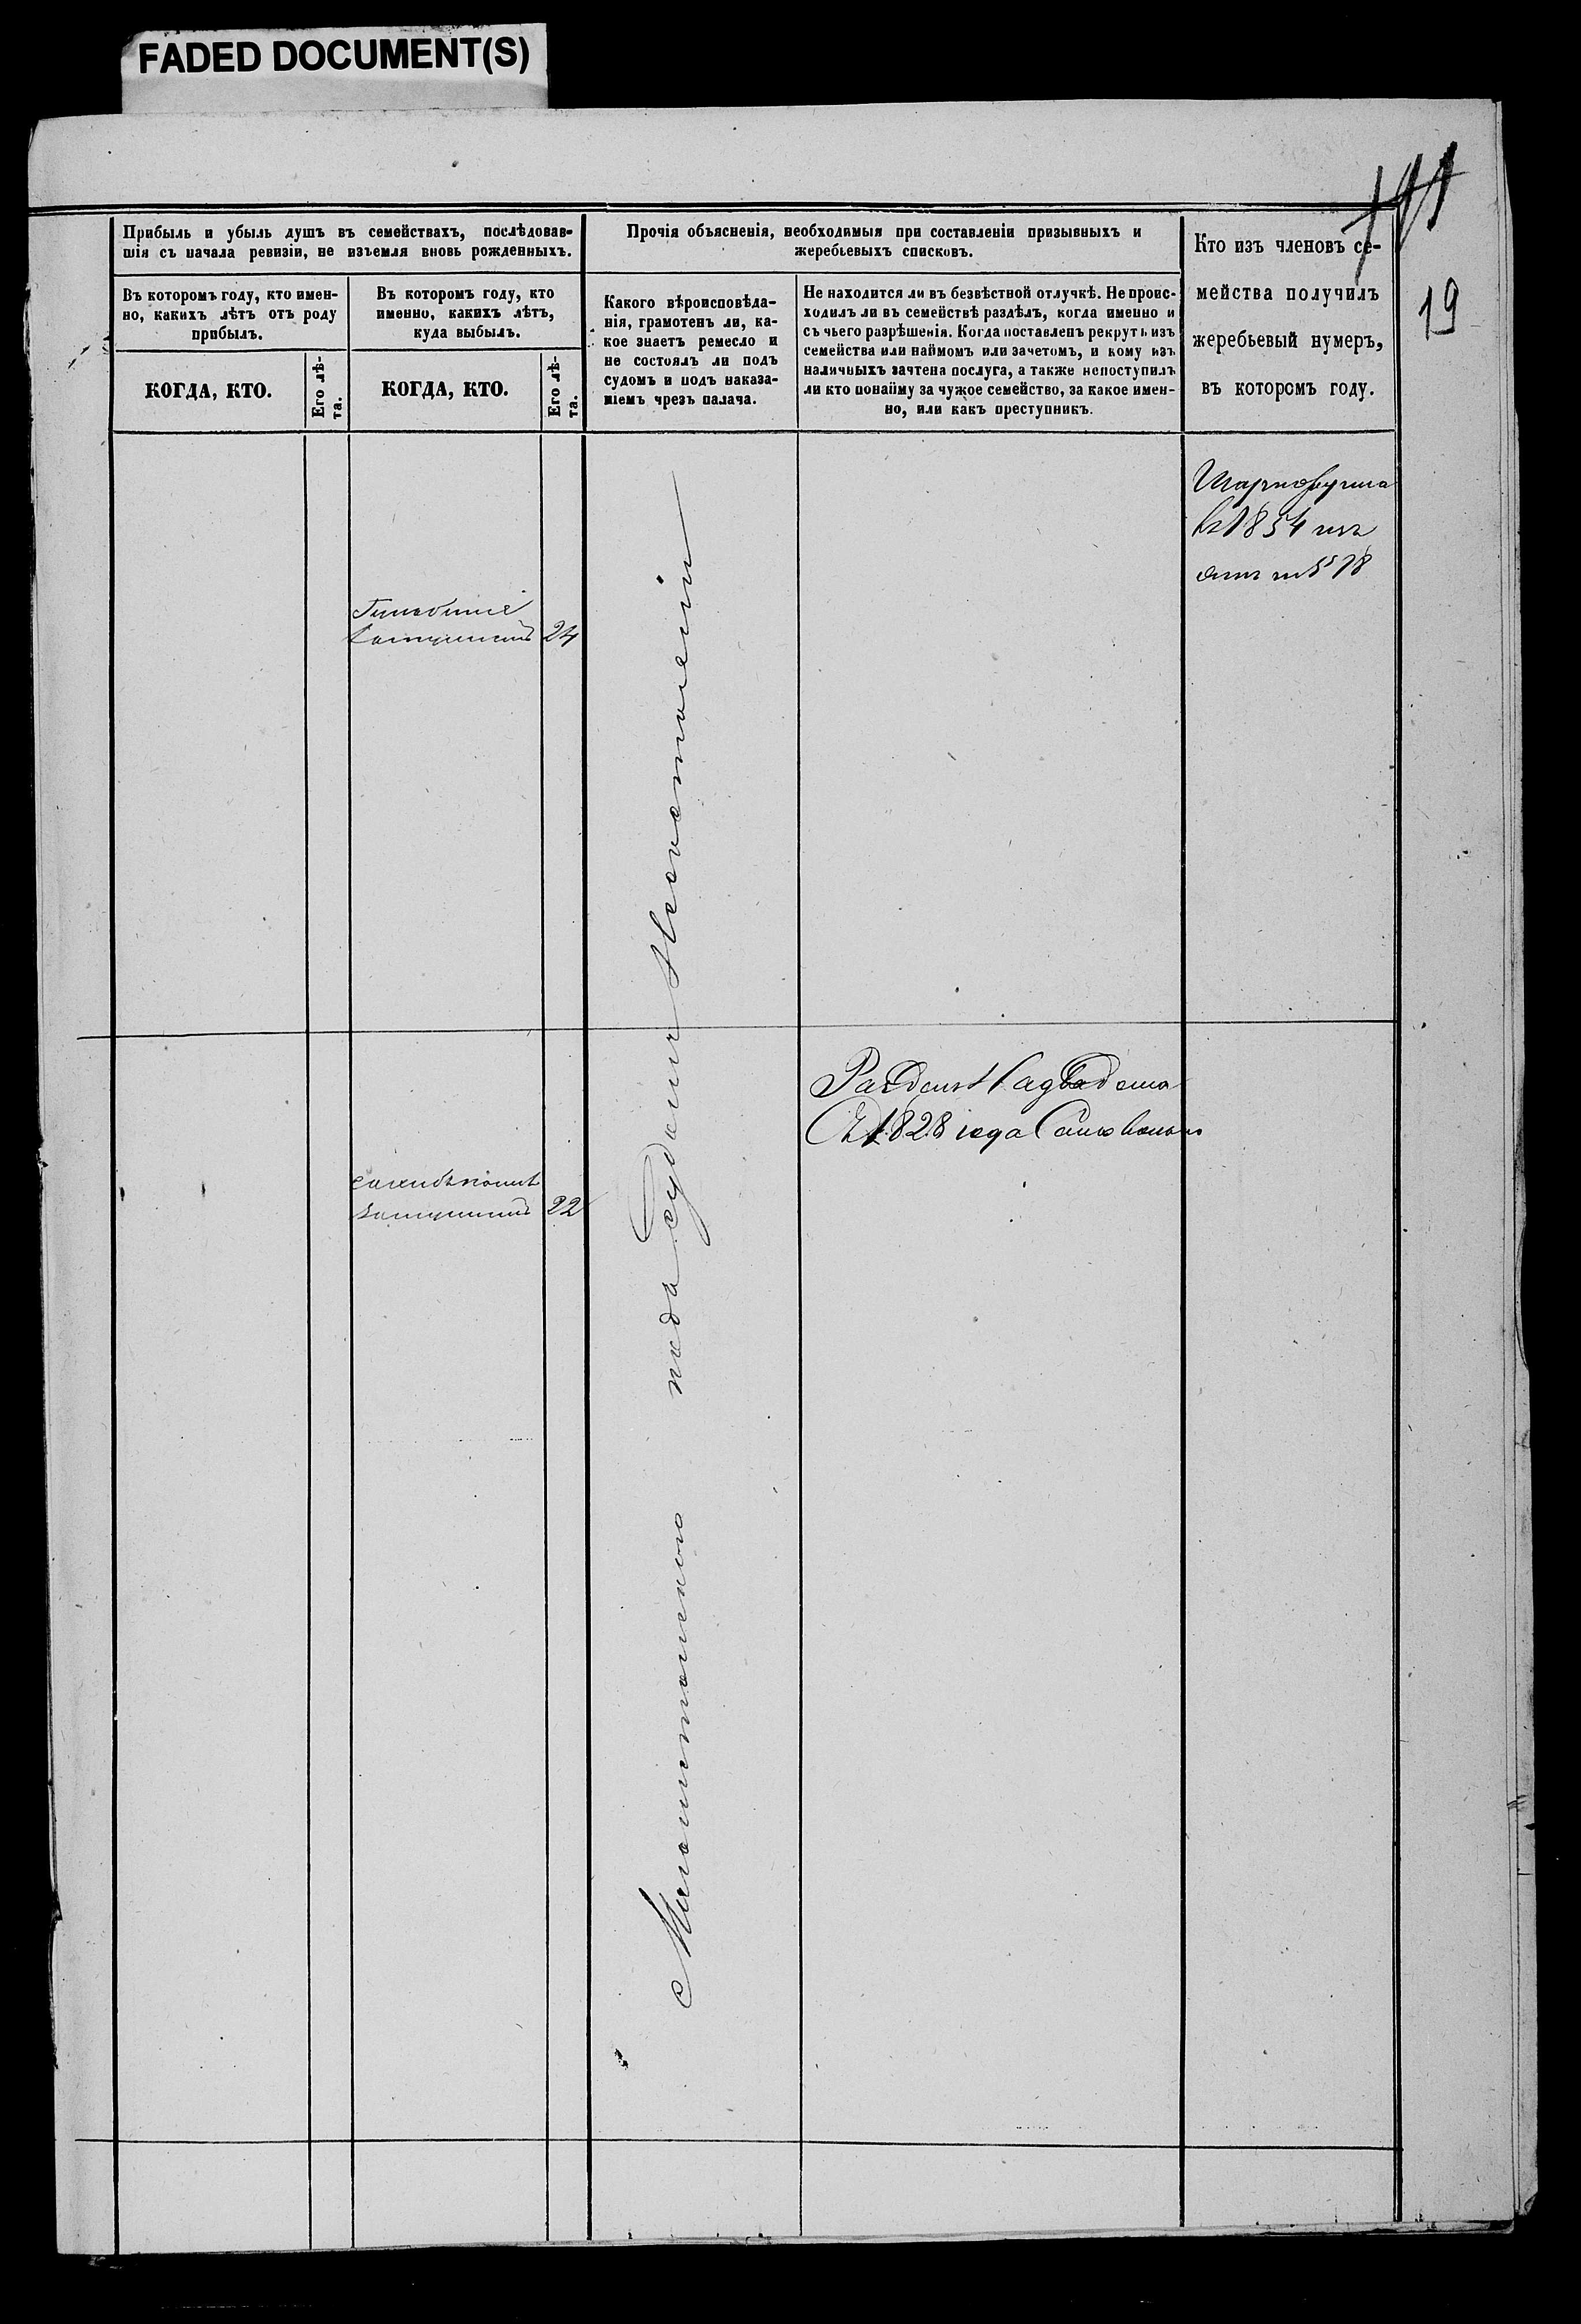 FADED DOCUMENT(S)
19
Прибыль и убыль душъ въ семействахъ, послѣдовав-
шія съ начала ревизіи, не изъемля вновь рожденныхъ.
Въ которомъ году, кто имен-
но, какихъ лѣтъ отъ роду
прибылъ.
КОГДА, КТО.
Его лѣ-
та.
Въ которомъ году, кто
именно, какихъ лѣтъ,
куда выбылъ.
КОГДА, КТО.
Его лѣ-
та.
Прочія объясненія, необходимыя при составленіи призывныхъ и
жеребьевыхъ списковъ.
Какого вѣроисповѣда-
нія, грамотенъ ли, ка-
кое знаетъ ремесло и
не состоялъ ли подъ
судомъ и подъ наказа-
ніемъ чрезъ палача.
Не находится ли въ безвѣстной отлучкѣ. Не проис-
ходилъ ли въ семействѣ раздѣлъ, когда именно и
съ чьего разрѣшенія. Когда поставленъ рекрутъ изъ
семейства или наймомъ или зачетомъ, и кому изъ
наличныхъ зачтена послуга, а также непоступилъ
ли кто понайму за чужое семейство, за какое имен-
но, или какъ преступникъ.
Кто изъ членовъ се-
мейства получилъ
жеребьевый нумеръ,
въ которомъ году.
въ 1854
№ 78
24
1828 года
22
Магометанскаго подъ Судомъ Несостояли